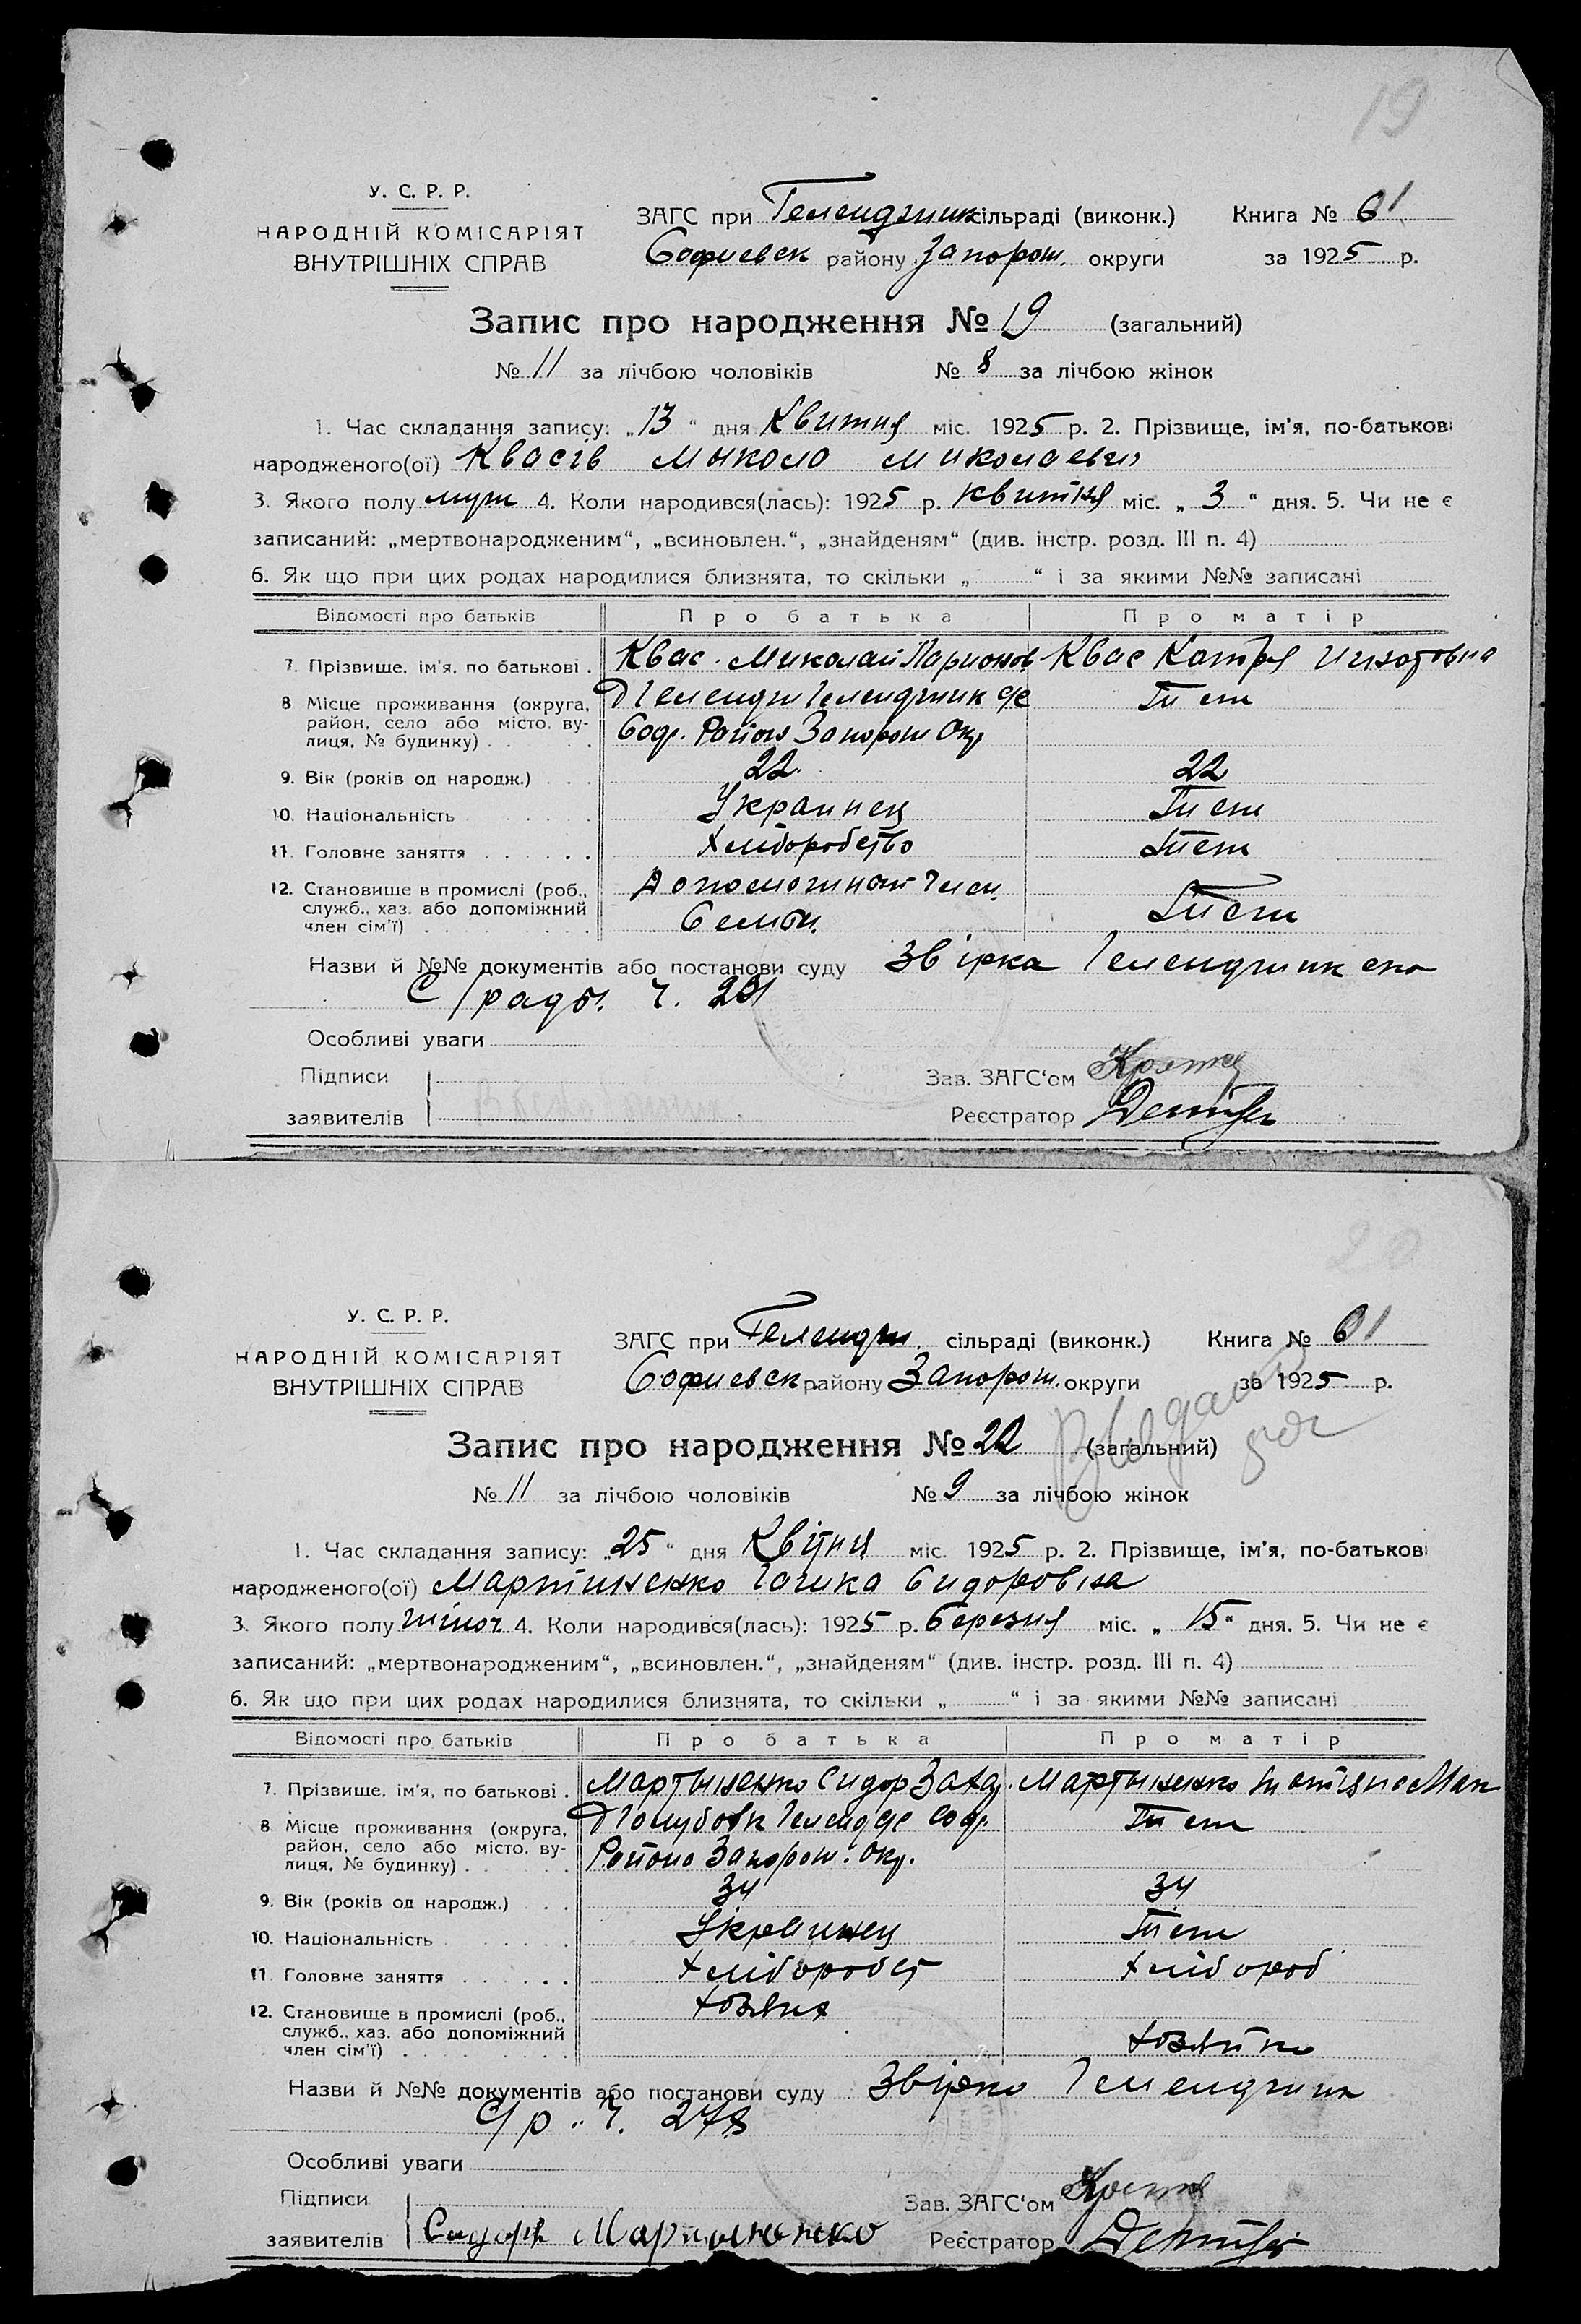 19
У. С. Р. Р.
НАРОДНІЙ КОМІСАРІЯТ
ВНУТРІШНІХ СПРАВ
ЗАГС при Геленджик сільраді (виконк.) Книга № 61
Софиевск району Запорож. округи за 1925 р.
Запис про народження № 19 (загальний)
№ 11 за лічбою чоловіків № 8 за лічбою жінок
1. Час складання запису: „13“ дня Квитня міс. 1925 р. 2. Прізвище, ім'я, по-батькові
народженого(ої) Квасів Микола Миколаевич
3. Якого полу муж 4. Коли народився(лась): 1925 р. квитня міс. „3“ дня. 5. Чи не є
записаний: „мертвонародженим“, „всиновлен.“, „знайденям“ (див. інстр. розд. III п. 4)
6. Як що при цих родах народилися близнята, то скільки „ “ і за якими №№ записані
Відомості про батьків Про батька Про матір
7. Прізвище, ім'я, по батькові . Квас Миколай Ларионов Квас Катря Игнатовна
8 Місце проживання (округа, район, село або місто, вулиця, № будинку) Д Гелендж Геленджик Соф. Район Запорож Окр Тиеж
9. Вік (років од народж.) 22. 22
10. Національність Украинец Тиеж
11. Головне заняття Хлиборобство Тиеж
12. Становище в промислі (роб., служб., хаз. або допоміжний член сім'ї) Допоможный член Семьи. Тиеж
Назви й №№ документів або постанови суду Звірка Геленджикско
С/рады. Ч. 231
Особливі уваги
Підписи Зав. ЗАГС'ом
заявителів Реєстратор
20
У. С. Р. Р.
НАРОДНІЙ КОМІСАРІЯТ
ВНУТРІШНІХ СПРАВ
ЗАГС при Гелендж. сільраді (виконк.) Книга № 61
Софиевск району Запорож. округи за 1925 р.
Запис про народження № 22 (загальний)
№ 11 за лічбою чоловіків № 9 за лічбою жінок
1. Час складання запису: „25“ дня Квітня міс. 1925 р. 2. Прізвище, ім'я, по-батькові
народженого(ої) Мартиненко Галика Сидоровна
3. Якого полу жіноч 4. Коли народився(лась): 1925 р. березня міс. „15“ дня. 5. Чи не є
записаний: „мертвонародженим“, „всиновлен.“, „знайденям“ (див. інстр. розд. III п. 4)
6. Як що при цих родах народилися близнята, то скільки „ “ і за якими №№ записані
Відомості про батьків Про батька Про матір
7. Прізвище, ім'я, по батькові . Мартыненко Сидор Захар. Мартыненко
8 Місце проживання (округа, район, село або місто, вулиця, № будинку) Д Голубовк Геленд Соф. Района Запорож. Окр. Тиеж
9. Вік (років од народж.) 34 34
10. Національність Украинец Тиеж
11. Головне заняття Хлібороб Хлібороб
12. Становище в промислі (роб., служб., хаз. або допоміжний член сім'ї) Хозяин Хозяйка
Назви й №№ документів або постанови суду Звірка Геленджик
С/р. Ч. 278
Особливі уваги
Підписи Зав. ЗАГС'ом
заявителів Сидор Мартыненко Реєстратор